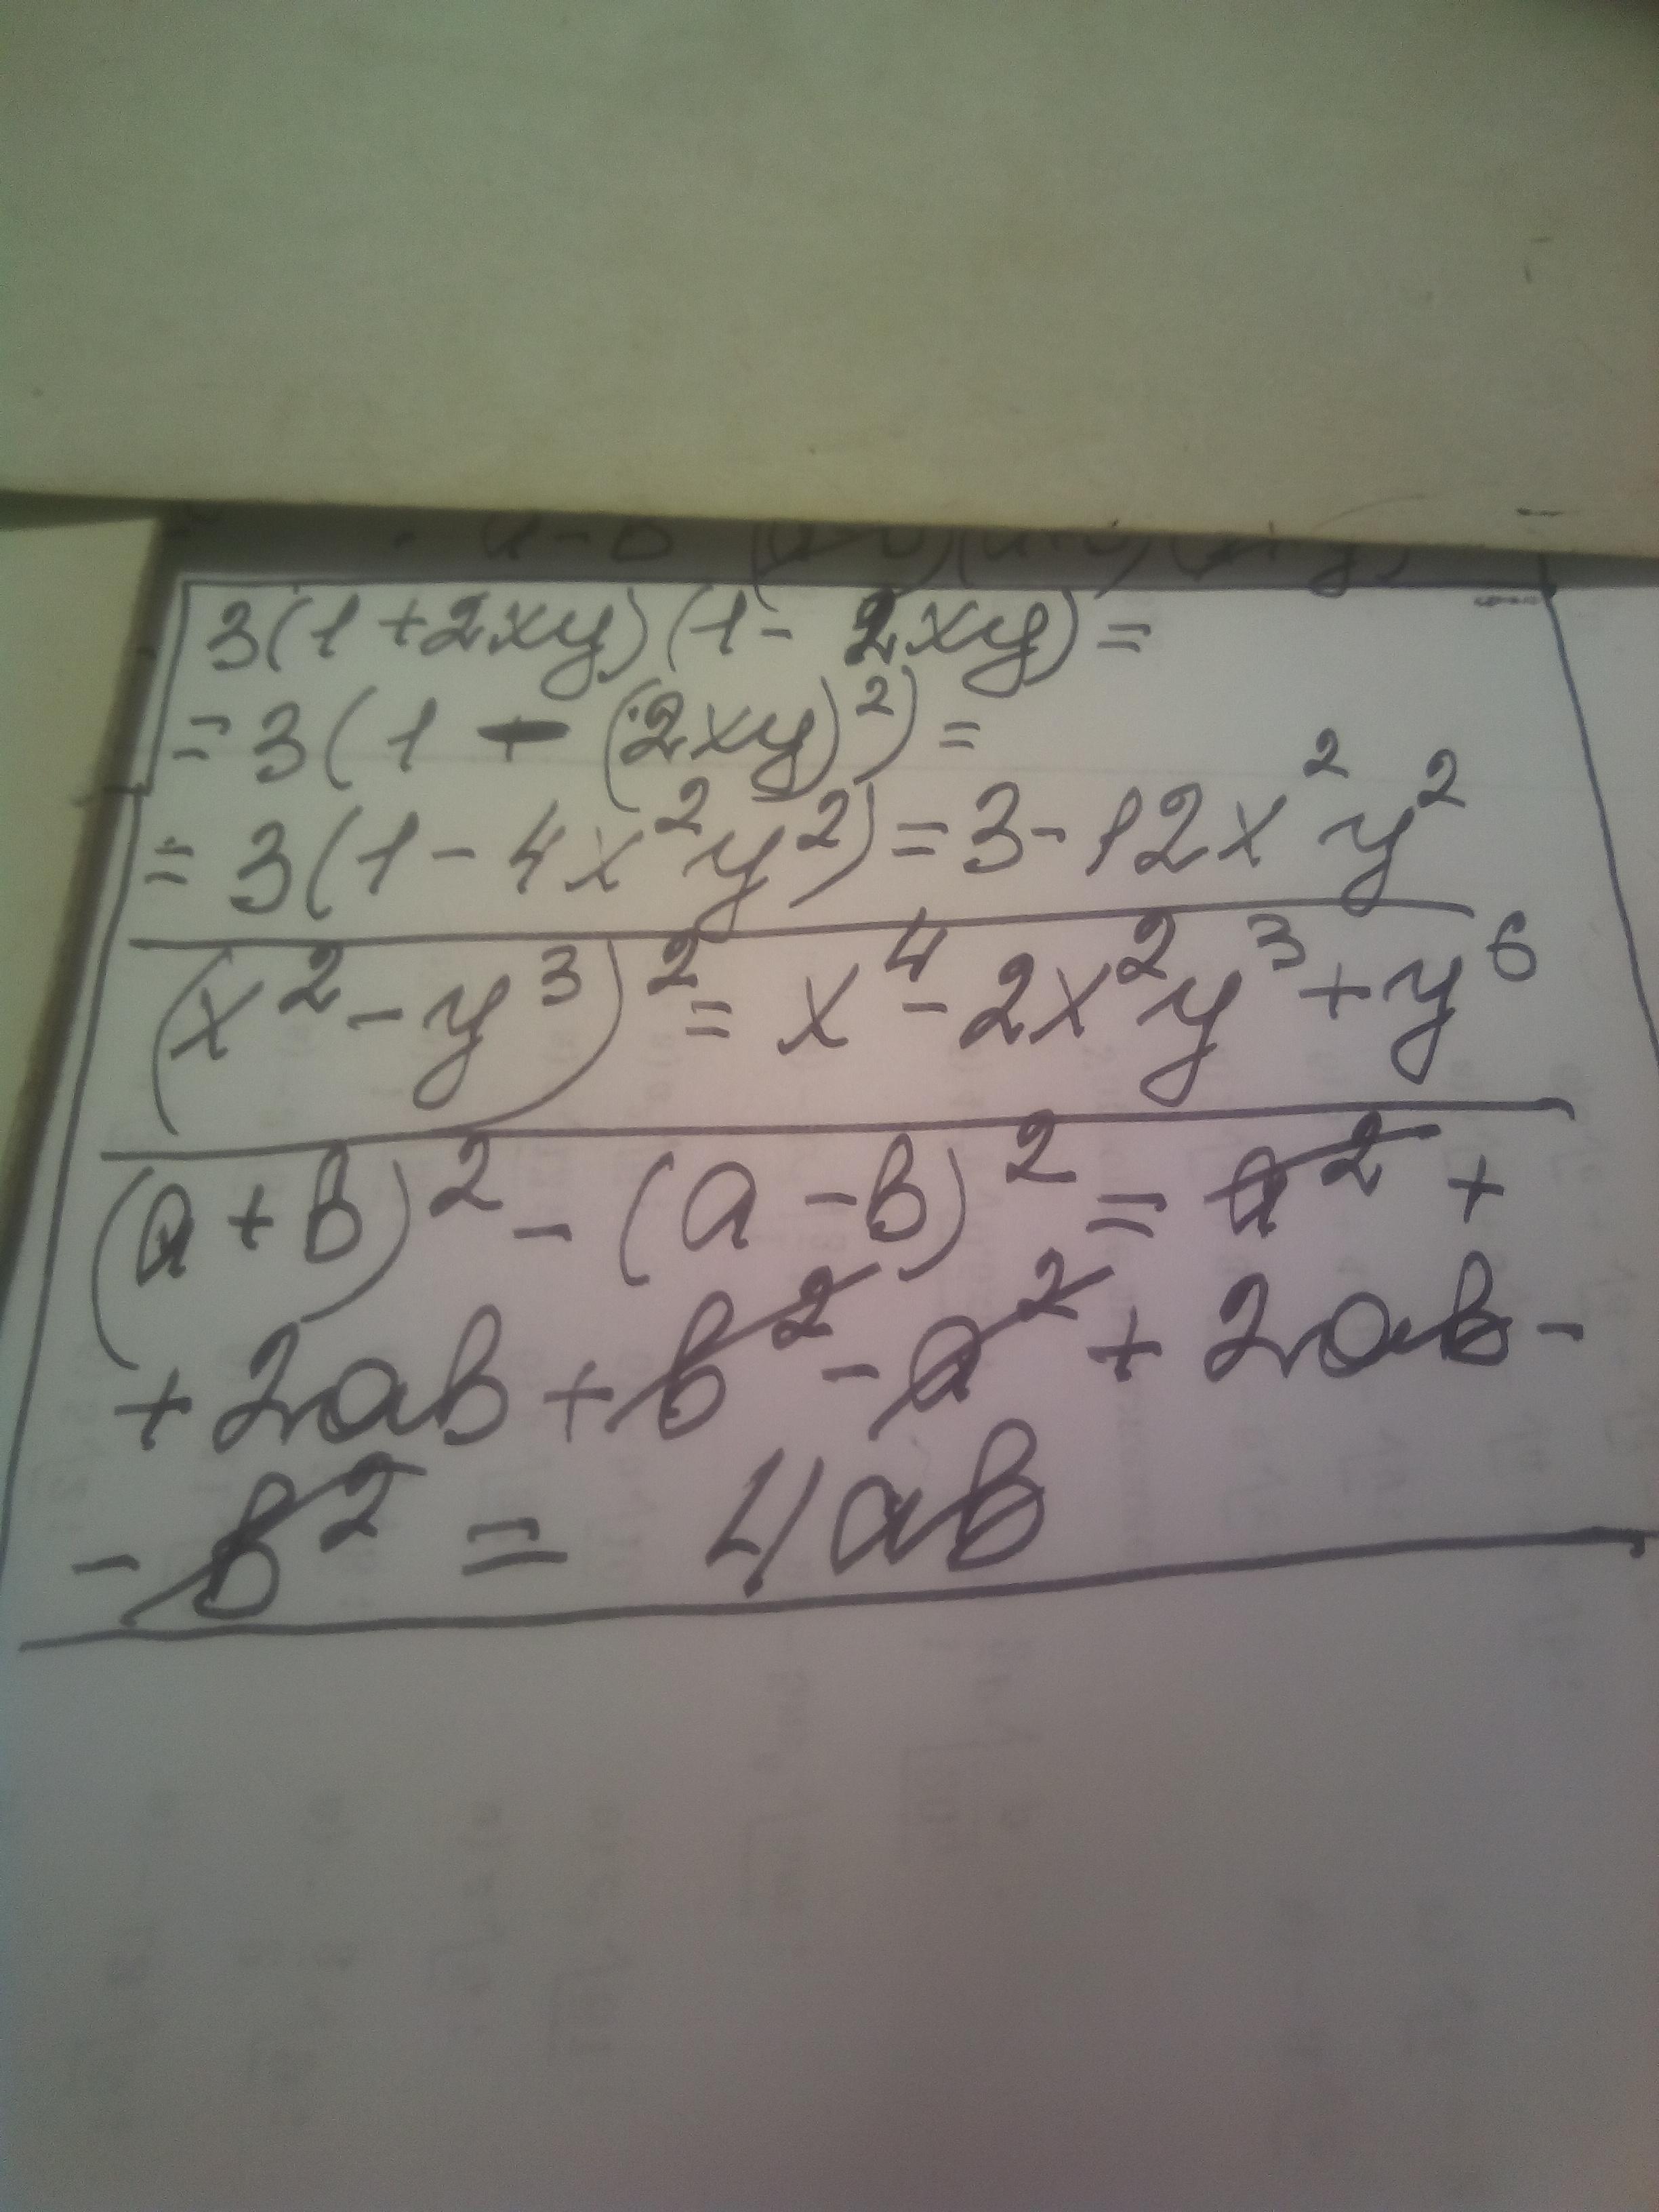 3(1+2xy)(1-2xy)=
=3(1-(2xy)²)=
=3(1-4x²y²)=3-12x²y²
(x²-y³)²=x⁴-2x²y³+y⁶
(a+b)²-(a-b)²=a²+
+2ab+b²-a²+2ab-
-b²=4ab